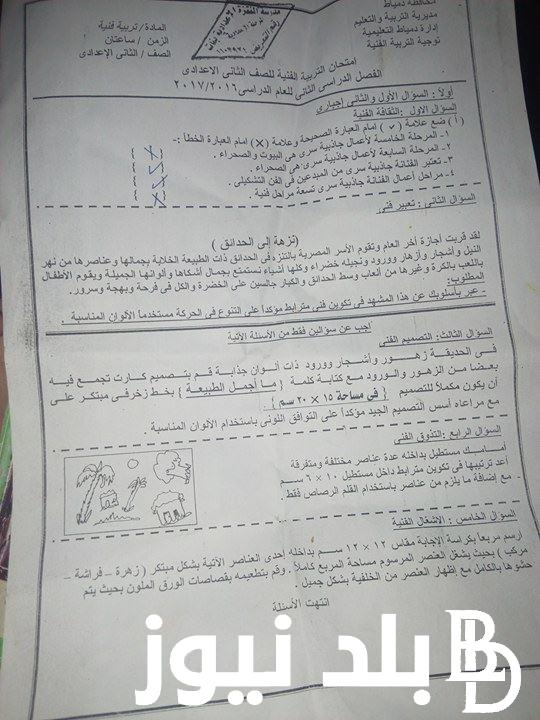 محافظة دمياط
مديرية التربية والتعليم
إدارة دمياط التعليمية
توجية التربية الفنية
المادة / تربية فنية
الزمن / ساعتان
الصف / الثانى الإعدادى
امتحان التربية الفنية للصف الثانى الاعدادى
الفصل الدراسى الثانى للعام الدراسى ٢٠١٦/٢٠١٧
أولاً : السؤال الأول والثانى أجبارى
السؤال الاول :الثقافة الفنية
( أ ) ضع علامة ( ✓ ) امام العبارة الصحيحة وعلامة (X) امام العبارة الخطأ :-
١- المرحلة الخامسة لأعمال جاذبية سرى هى البيوت والصحراء .
٢- المرحلة السابعة لأعمال جاذبية سرى هى الصحراء .
٣- تعتبر الفنانة جاذبية سرى من المبدعين فى الفن التشكيلى .
٤- مراحل أعمال الفنانة جاذبية سرى تسعة مراحل فنية .
السؤال الثانى : تعبير فنى
( نزهة إلى الحدائق )
لقد قربت أجازة أخر العام وتقوم الأسر المصرية بالتنزه فى الحدائق ذات الطبيعة الخلابة بجمالها وعناصرها من نهر
النيل وأشجار وأزهار وورود ونجيله خضراء وكلها أشياء نستمتع بجمال أشكالها وألوانها الجميلة ويقوم الأطفال
باللعب بالكرة وغيرها من ألعاب وسط الحدائق والكبار جالسين على الخضرة والكل فى فرحة وبهجة وسرور.
المطلوب:
- عبر بأسلوبك عن هذا المشهد فى تكوين فنى مترابط مؤكداً على التنوع فى الحركة مستخدماً الألوان المناسبة .
أجب عن سؤالين فقط من الأسئلة الآتية
السؤال الثالث: التصميم الفنى
فى الحديقة زهور وأشجار وورود ذات ألوان جذابة قم بتصميم كارت تجمع فيه
بعضا من الزهور والورود مع كتابة كلمة { ما أجمل الطبيعة } بخط زخرفى مبتكر على
أن يكون مكملاً للتصميم { فى مساحة ١٥ × ٢٠ سم } .
مع مراعاه أسس التصميم الجيد مؤكداً على التوافق اللونى باستخدام الألوان المناسبة .
السؤال الرابع: التذوق الفنى
أمامك مستطيل بداخله عدة عناصر مختلفة ومتفرقة
أعد ترتيبها فى تكوين مترابط داخل مستطيل ١٠ × ٦ سم
- مع إضافة ما يلزم من عناصر باستخدام القلم الرصاص فقط.
السؤال الخامس : الأشغال الفنية
ارسم مربعاً بكراسة الإجابة مقاس ١٢ × ١٢ سم بداخله أحدى العناصر الآتية بشكل مبتكر ( زهرة – فراشة –
مركب ) بحيث يشغل العنصر المرسوم مساحة المربع كاملاً . وقم بتطعيمه بقصاصات الورق الملون بحيث يتم
حشوها بالكامل مع إظهار العنصر من الخلفية بشكل جميل .
انتهت الأسئلة
بلد نيوز